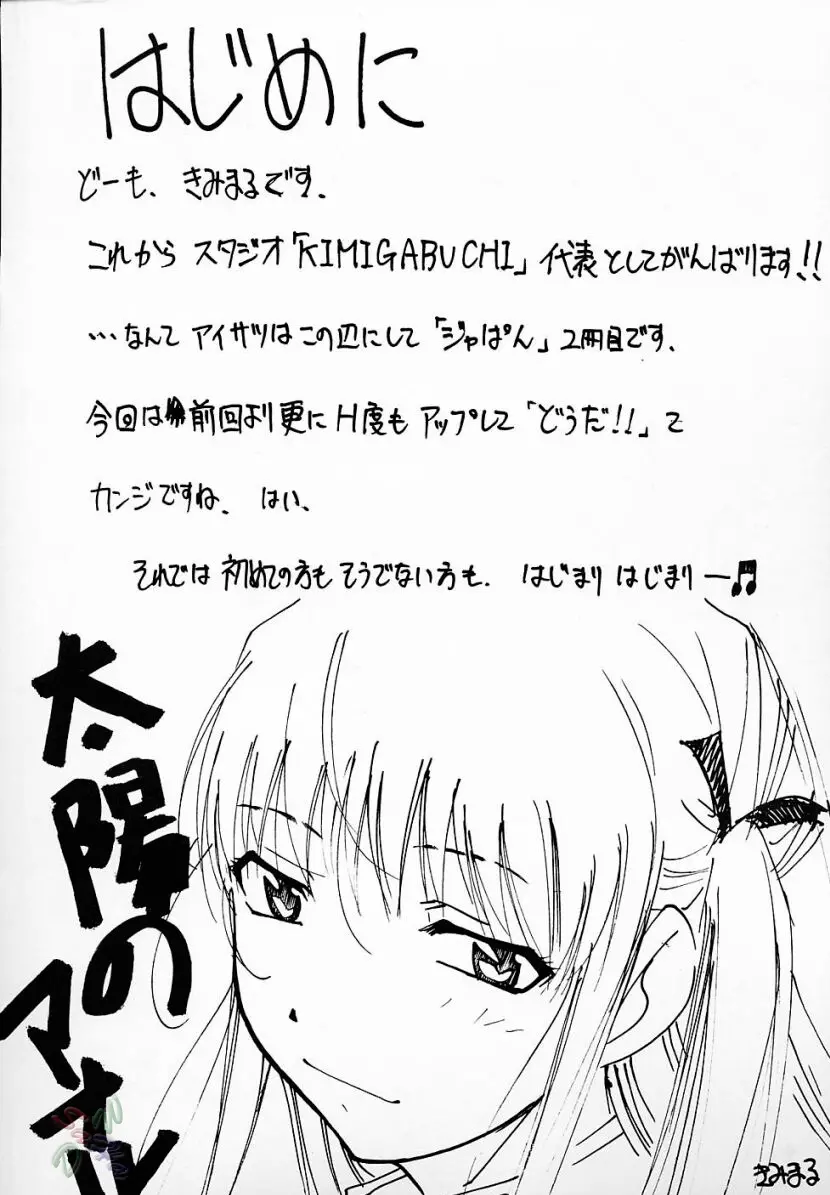 はじめに
どーも、きみまるです。
これから スタジオ「KIMIGABUCHI」代表としてがんばります!!
…なんて アイサツはこの辺にして「ジャぱん」2冊目です。
今回は前回より更に H度も アップして「どうだ!!」て
カンジですね、はい、
それでは 初めての方も そうでない方も、はじまり はじまりー♫
太陽の
マオル
きみまる